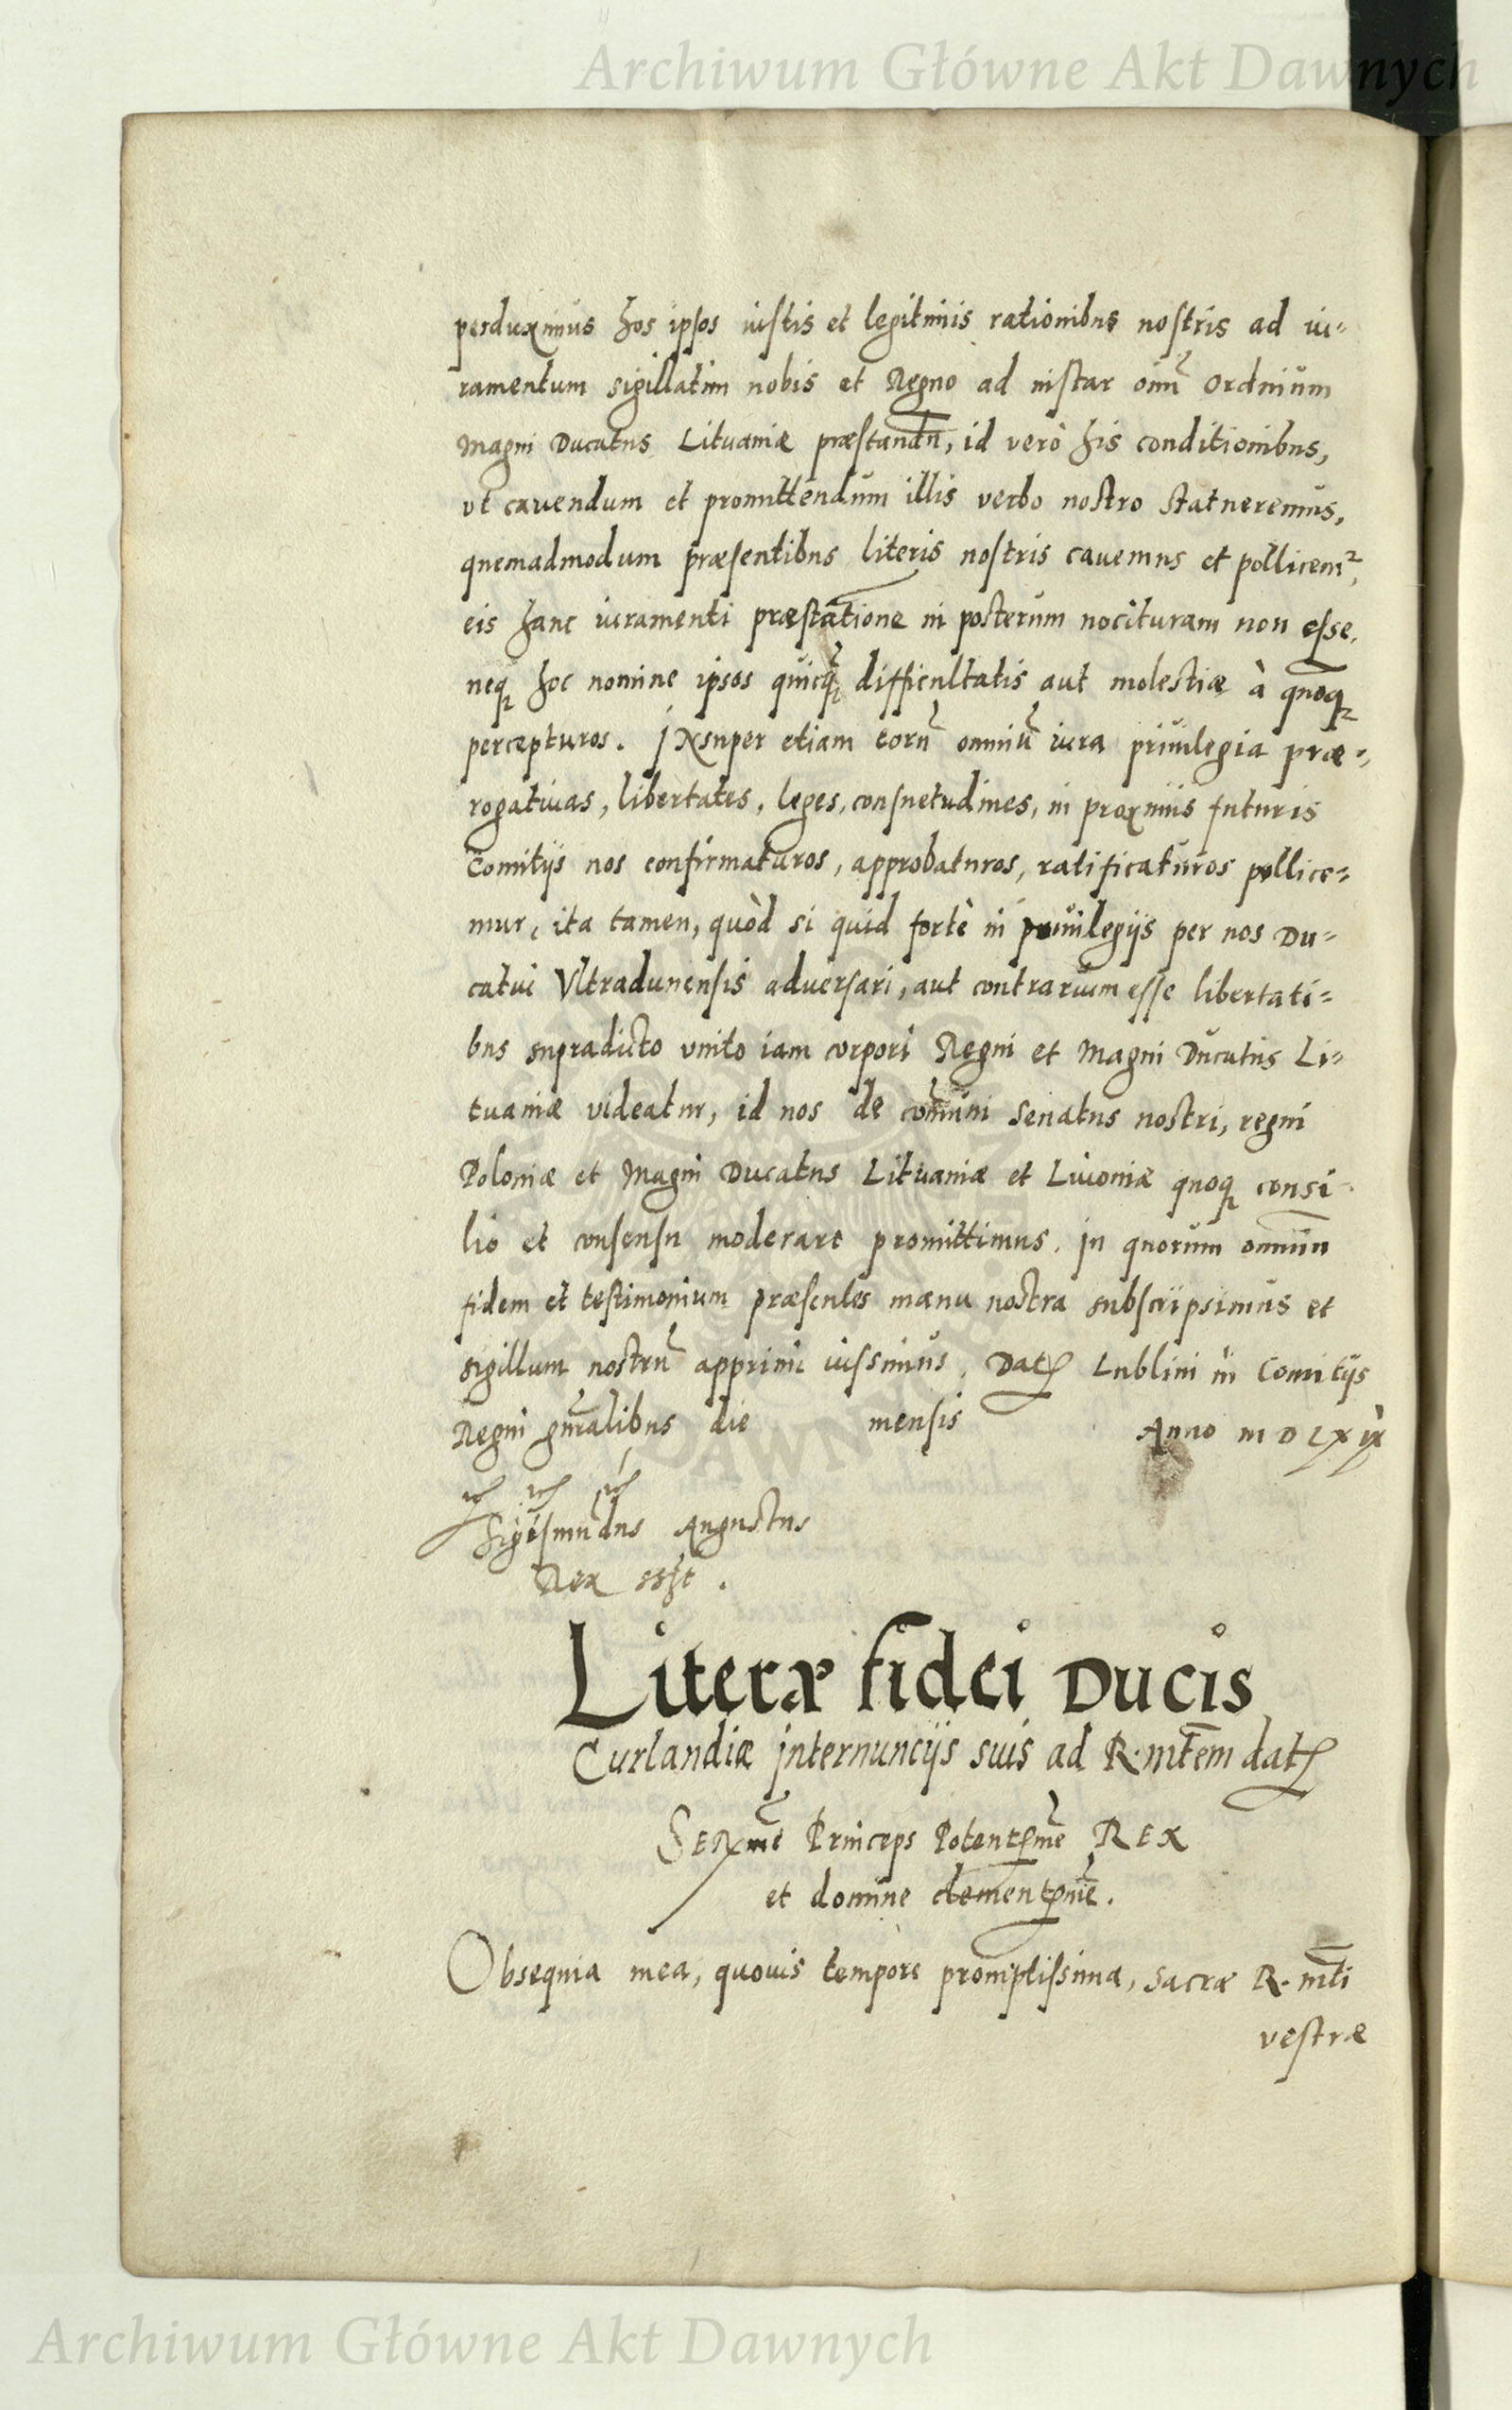 Archiwum Główne Akt Dawnych
perduximus hos ipsos iustis et legitimis rationibus nostris ad iu=
ramentum sigillatim nobis et Regno ad instar oĩm Ordinium
Magni Ducatus Lituaniæ præstandū, id verò his conditionibus,
vt cauendum et promittendum illis verbo nostro statueremus,
quemadmodum præsentibus literis nostris cauemus et pollicem²,
eis hanc iuramenti præstatione in posterum nocituram non esse,
neqꝫ hoc nomine ipsos quicqꝫ̃ difficultatis aut molestiæ à quoqꝫ
percepturos. INsuper etiam eorũ omniũ iura priuilegia præ=
rogatiuas, libertates, leges, consuetudines, in proximis futuris
Comitijs nos confirmaturos, approbaturos, ratificaturos pollice=
mur, ita tamen, quòd si quid fortè in priuilegijs per nos Du=
catui Vltradunensis aduersari, aut contrarium esse libertati=
bus supradicto vnito iam corpori Regni et Magni Ducatus Li=
tuaniæ videatur, id nos de com̃uni Senatus nostri, regni
Poloniæ et Magni Ducatus Lituaniæ et Liuoniæ quoqꝫ consi=
lio et consensu moderare promittimus. in quorum omniū
fidem et testimonium præsentes manu nostra subscripsimus et
sigillum nostrũ apprimi iussimus. Datꝭ Lublini in Comitijs
Regni gñralibus die mensis Anno MDLXIX
Sigismūdus Augustus
Rex sszt.
Literæ fidei Ducis
Curlandiæ internuncijs suis ad R. mtem datꝭ
SERxmẽ Princeps Potentꝑmẽ REX
et domine clementꝑmẽ.
Obsequia mea, quouis tempore promptissima, Sacræ R. mti
vestræ
Archiwum Główne Akt Dawnych